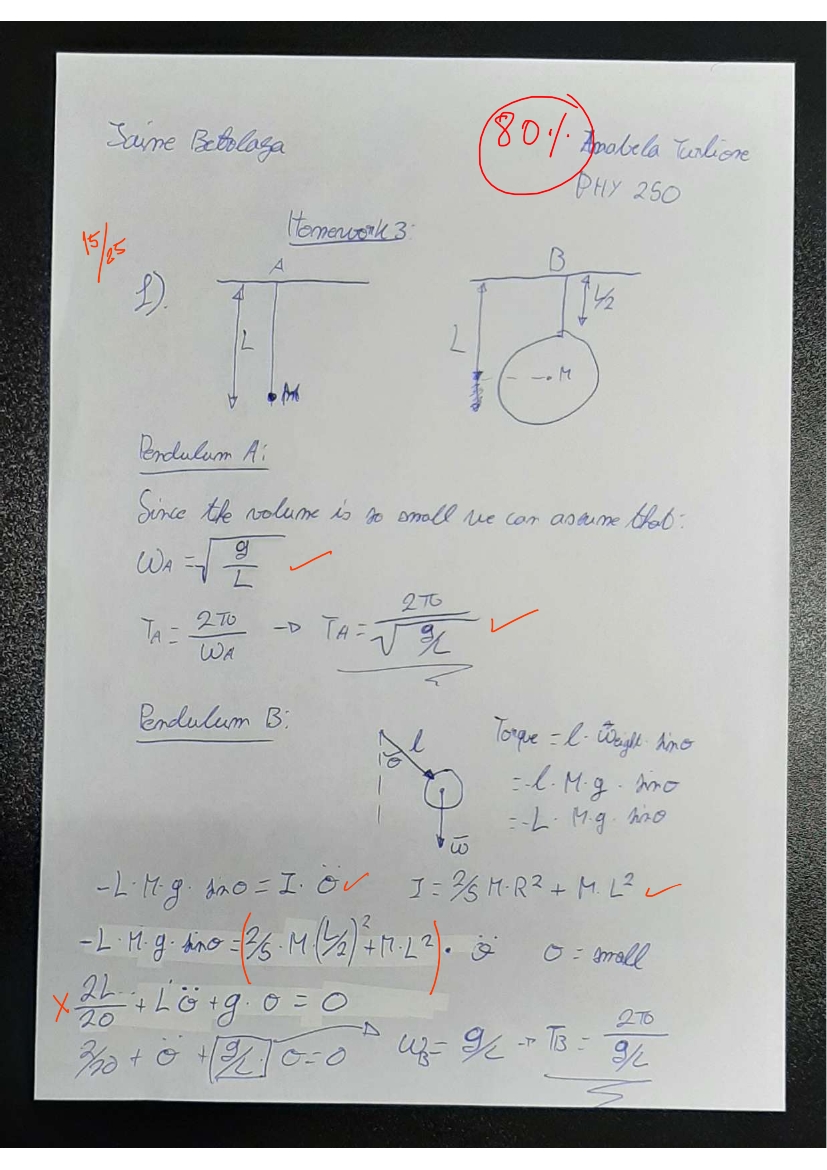 Jaime Betolaza
80%
Anabela Turlione
PHY 250
Homework 3:
15/25
1).
A
L
B
L/2
L
M
Pendulum A:
Since the volume is so small we can assume that:
ωA = √(g/L)
TA = 2π/ωA → TA = 2π/√(g/L)
Pendulum B:
l
θ
w⃗
Torque = l · W⃗eight · sinθ
= -l · M · g · sinθ
= -L · M · g · sinθ
-L · M · g · sinθ = I · θ̈ I = 2/5 M · R² + M · L²
-L · M · g · sinθ = (2/5 · M · (L/2)² + M · L²) · θ̈ θ = small
2L/20 + L θ̈ + g · θ = 0
2/20 + θ̈ + g/L · θ = 0 ωB = g/L → TB = 2π/(g/L)